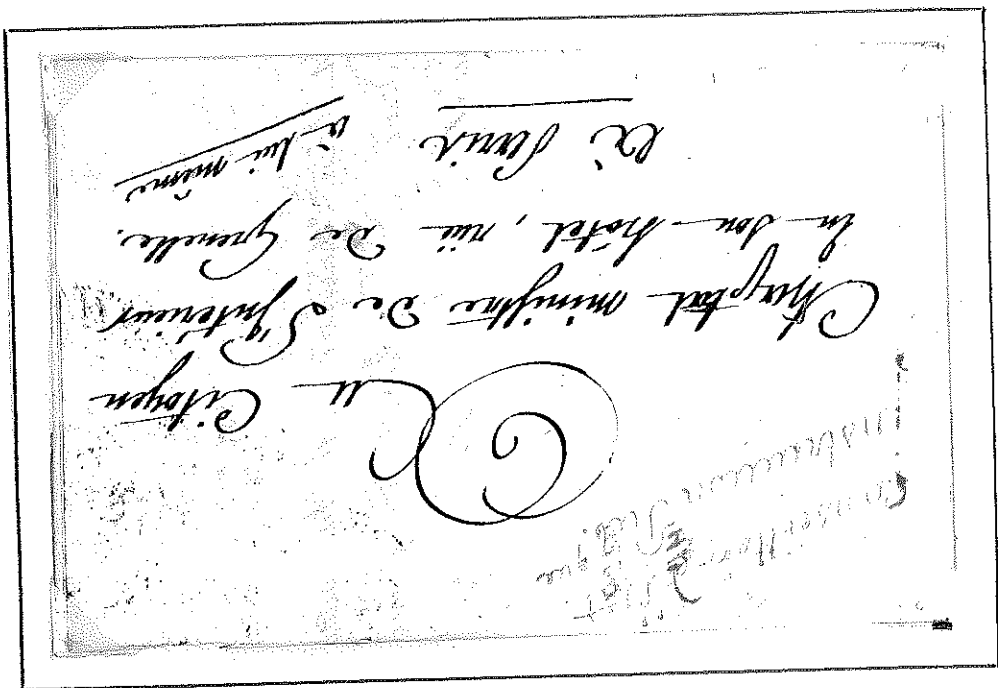 Au Citoyen
Chaptal ministre De L'Interieur
En Son hôtel, rüe De Grenelle.
à Paris
à lui même